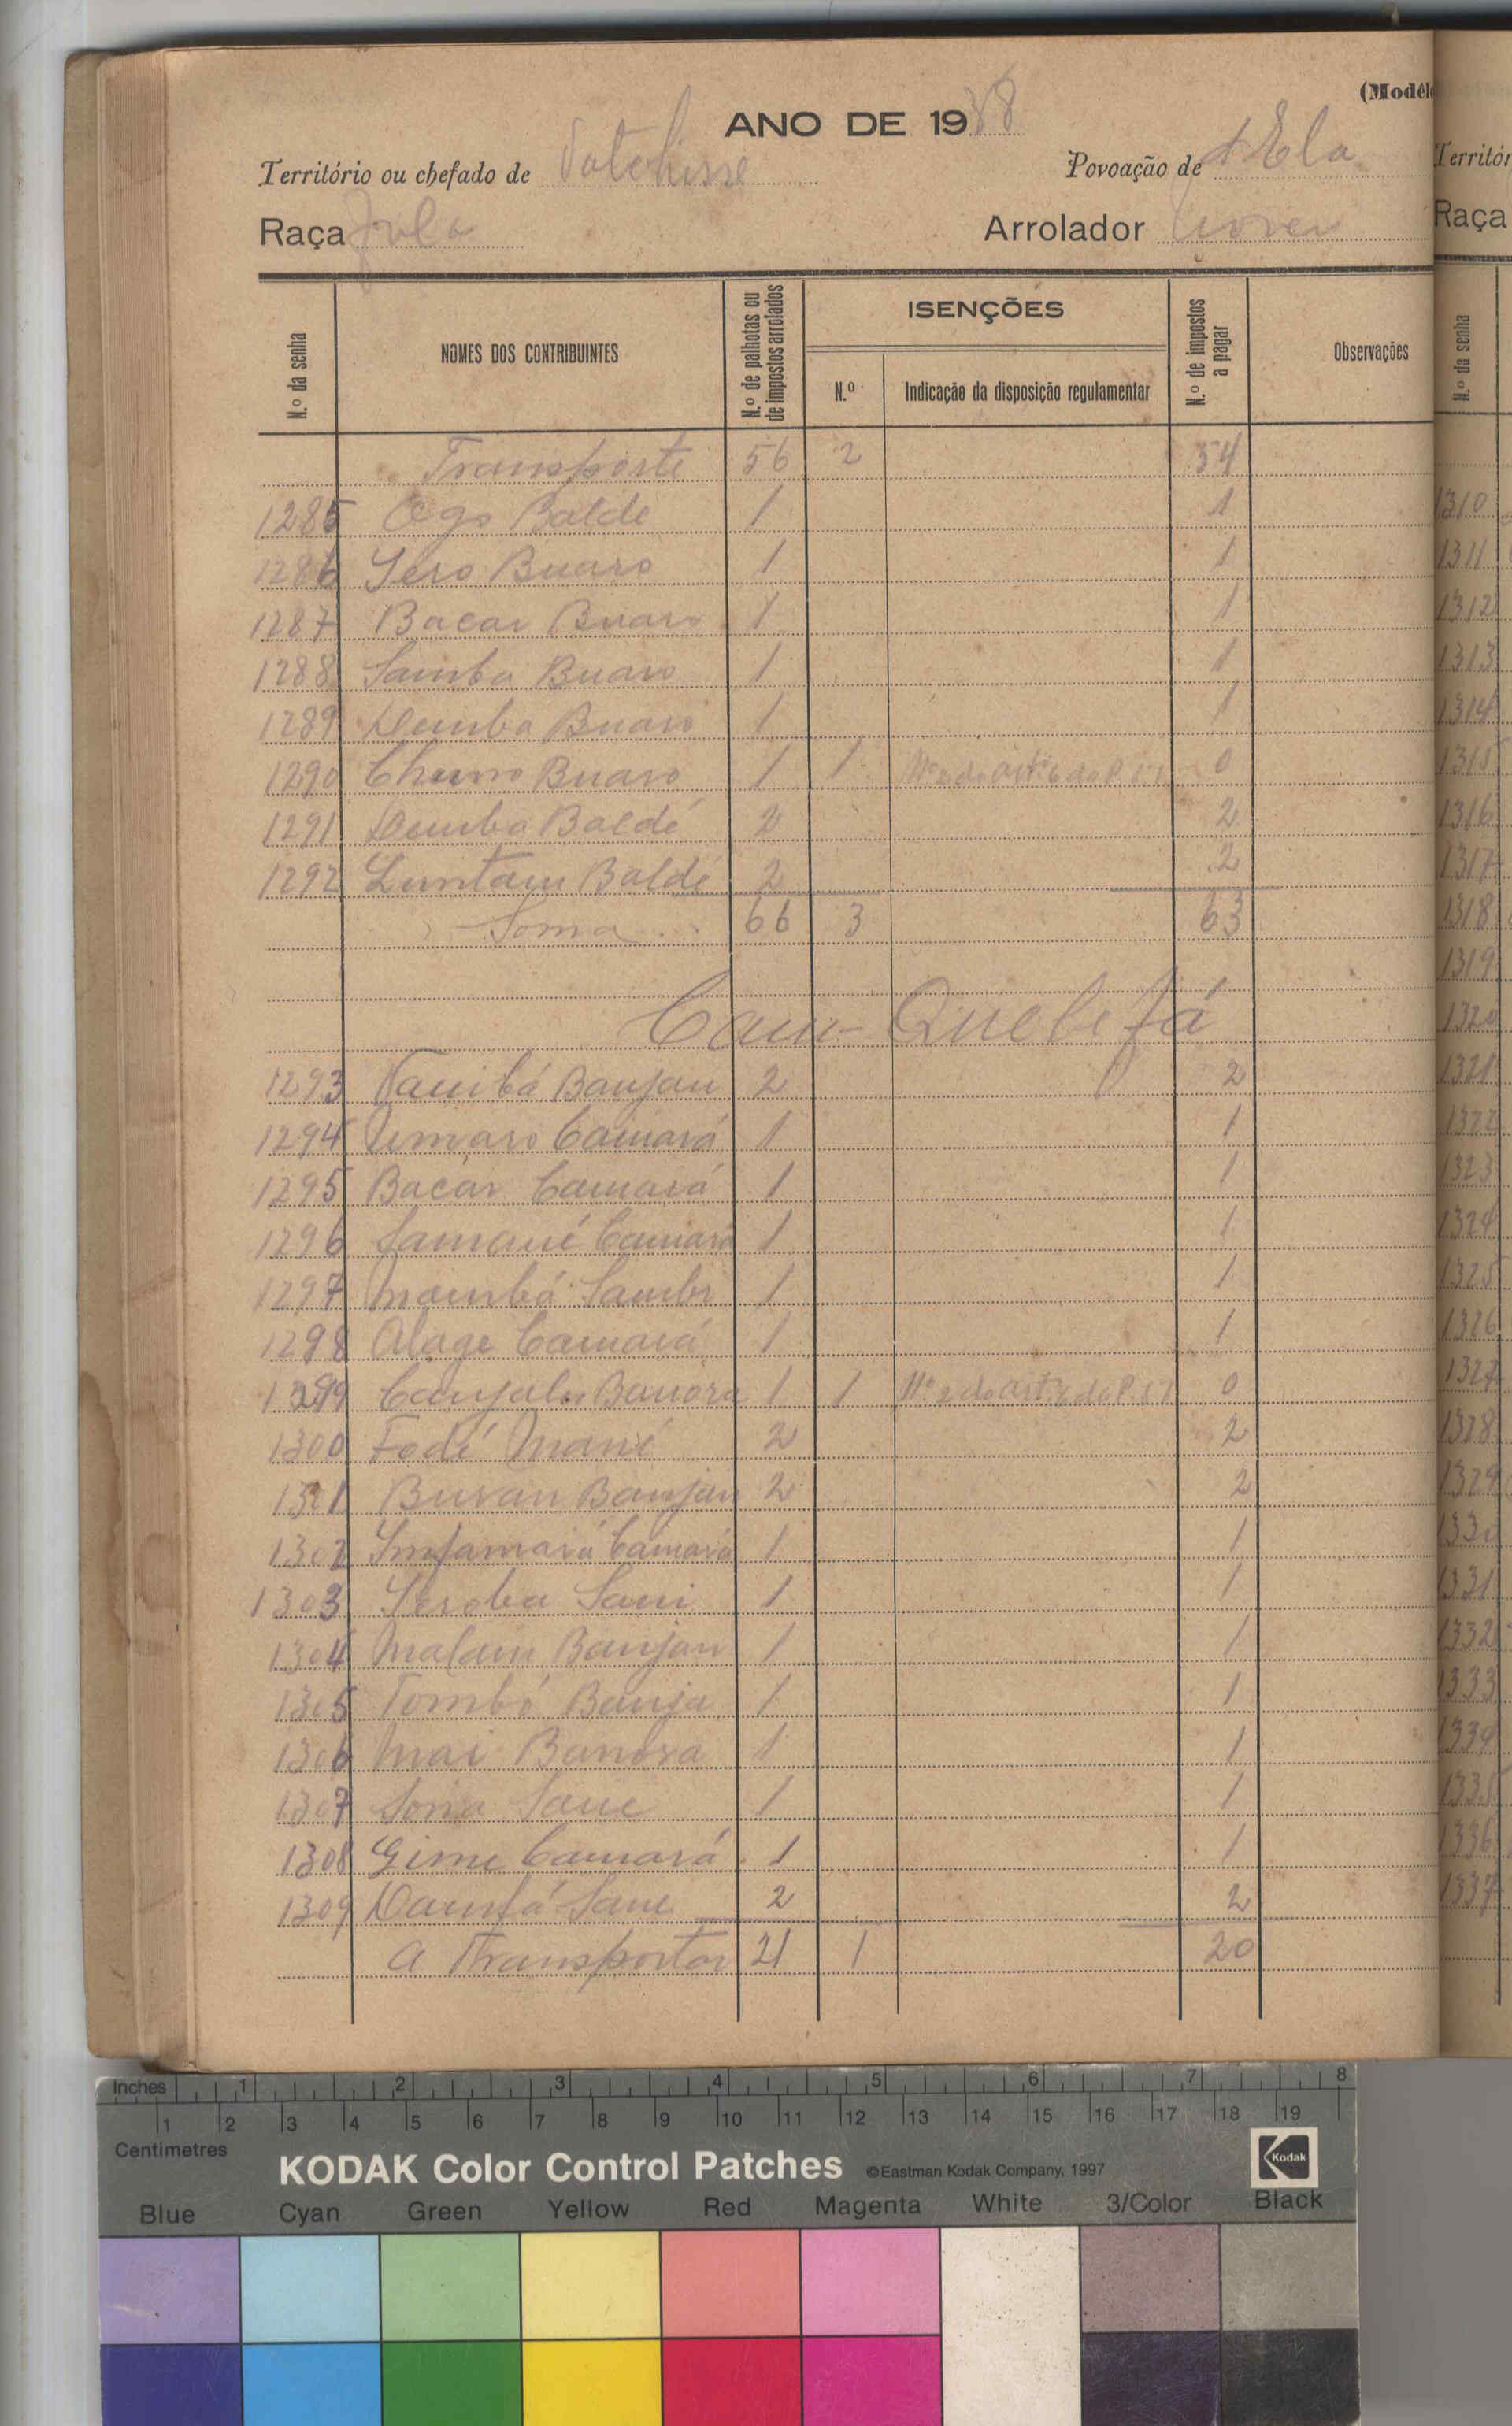 (Modêl
ANO DE 1938
Território ou chefado de
Povoação de
Raça Fula
Arrolador
N.º da senha
NOMES DOS CONTRIBUINTES
N.º de palhotas ou de impostos arrolados
ISENÇÕES
N.º
Indicação da disposição regulamentar
N.º de impostos a pagar
Observações
Transporte 56 2 54
1285 Ogo Balde 1 1
1286 Sero Buaro 1 1
1287 Bacar Buaro 1 1
1288 Samba Buaro 1 1
1289 Demba Buaro 1 1
1290 Cherno Buaro 1 1 0
1291 Demba Baldé 2 2
1292 Baldé 2 2
Soma 66 3 63
Cam-Quelifá
1293 Banjan 2 2
1294 Umaro Camará 1 1
1295 Bacar Camará 1 1
1296 Camará 1 1
1297 1 1
1298 Alage Camará 1 1
1299 1 1 0
1300 Fodé Mané 2 2
1301 Banjan 2 2
1302 Camará 1 1
1303 Sani 1 1
1304 Malam Banjan 1 1
1305 Banja 1 1
1306 Mai 1 1
1307 Sane 1 1
1308 Gime Camará 1 1
1309 Sane 2 2
A Transportar 21 1 20
Territór
Raça
N.º da senha
1310
1311
1312
1313
1314
1315
1316
1317
1318
1319
1320
1321
1322
1323
1324
1325
1326
1327
1328
1329
1330
1331
1332
1333
1334
1335
1336
1337
Inches 1 2 3 4 5 6 7 8
1 2 3 4 5 6 7 8 9 10 11 12 13 14 15 16 17 18 19
Centimetres
KODAK Color Control Patches ©Eastman Kodak Company, 1997 Kodak
Blue Cyan Green Yellow Red Magenta White 3/Color Black